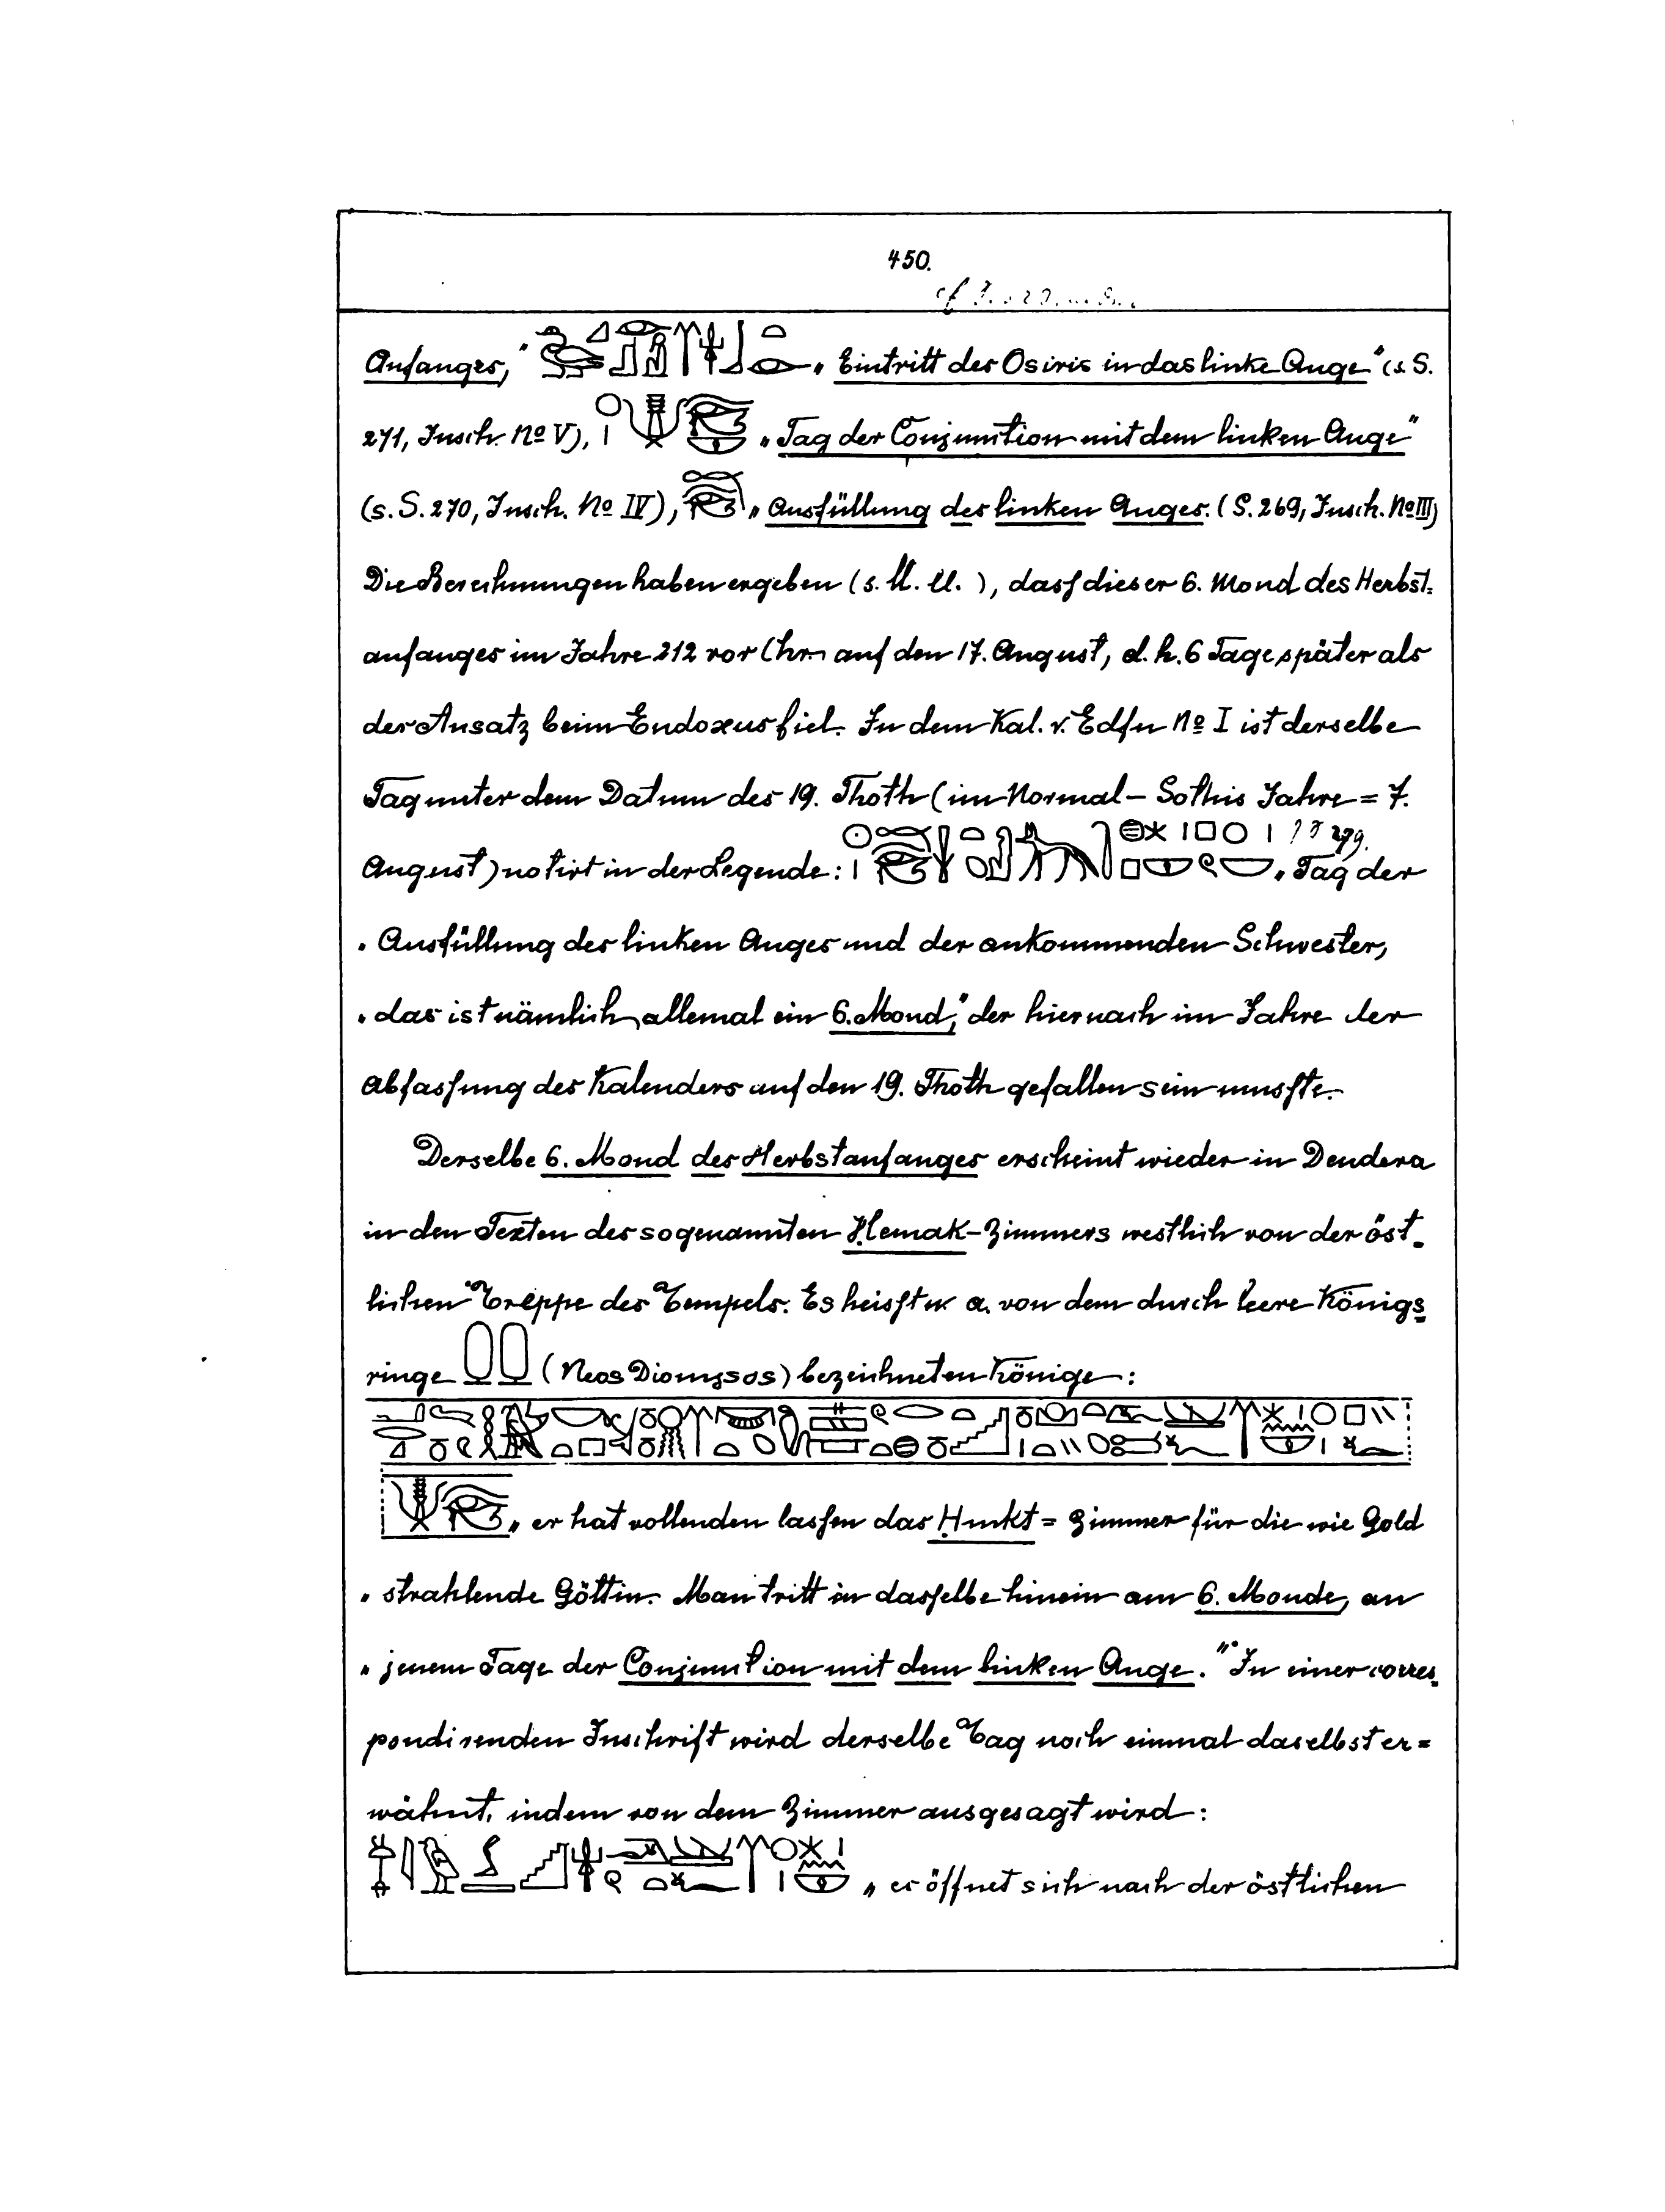 450.
Anfanges," „Eintritt des Osiris in das linke Auge" (s. S.
271, Insch. No V), „Tag der Conjunction mit dem linken Auge"
(s. S. 270, Insch. No IV), „Ausfüllung des linken Auges. (S. 269, Insch. No III)
Die Berechnungen haben ergeben (s. U. U.), dass dieser 6. Mond des Herbst=
anfanges im Jahre 212 vor Chr. auf den 17. August, d. h. 6 Tage später als
der Ansatz beim Eudoxus fiel. In dem Kal. v. Edfu No I ist derselbe
Tag unter dem Datum des 19. Thoth (im Normal-Sothis Jahre = 7.
August) notirt in der Legende: „Tag der
„Ausfüllung des linken Auges und der ankommenden Schwester,
„das ist nämlich allemal ein 6. Mond," der hiernach im Jahre der
Abfassung des Kalenders auf den 19. Thoth gefallen sein musste.
Derselbe 6. Mond des Herbstanfanges erscheint wieder in Dendera
in den Texten des sogenannten Ḥemak-Zimmers westlich von der öst=
lichen Treppe des Tempels. Es heisst u. a. von dem durch leere Königs=
ringe (Neos Dionysos) bezeichneten Könige:
„er hat vollenden lassen das Ḥmkt=Zimmer für die wie Gold
„strahlende Göttin. Man tritt in dasselbe hinein am 6. Monde, an
„jenem Tage der Conjunction mit dem linken Auge." In einer corres=
pondirenden Inschrift wird derselbe Tag noch einmal daselbst er=
wähnt, indem von dem Zimmer ausgesagt wird:
„es öffnet sich nach der östlichen